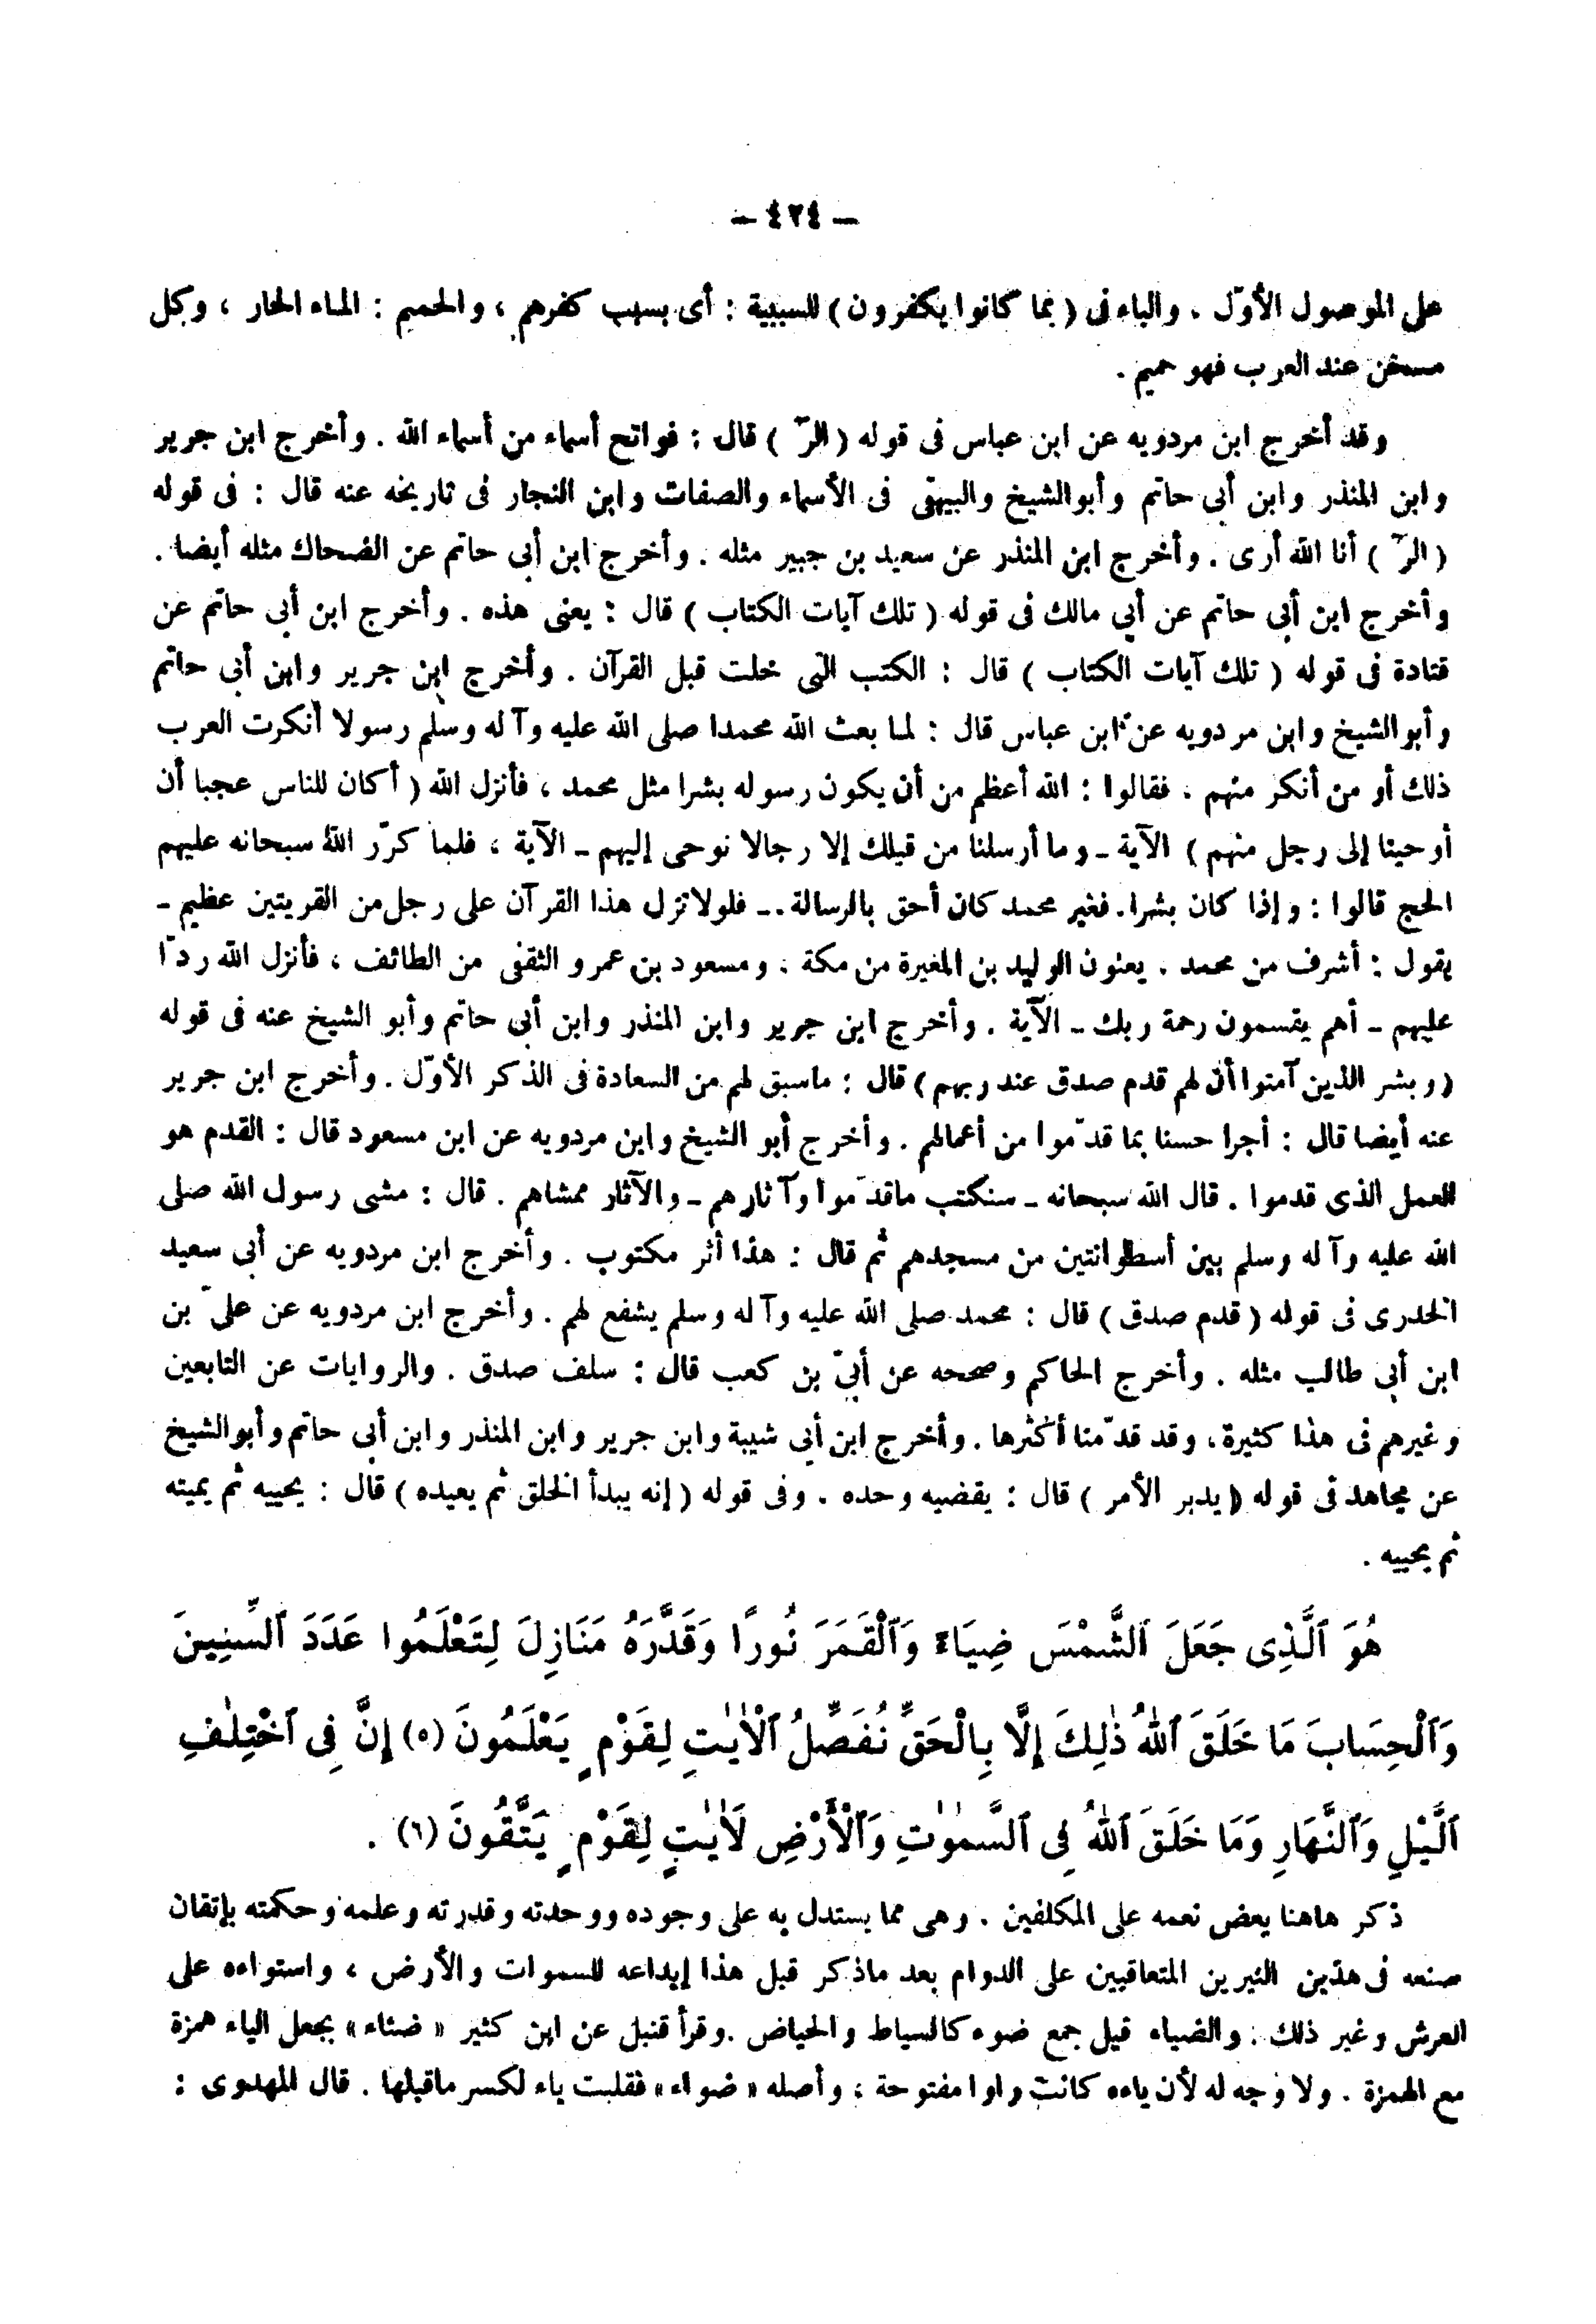 – ٤٢٤ –
على الموصول الأوّل ، والباء فى ( بما كانوا يكفرون ) للسببية : أى بسبب كفرهم ، والحميم : الماء الحار ، وكل
مسخن عند العرب فهو حميم .
وقد أخرج ابن مردويه عن ابن عباس فى قوله ( الرٓ ) قال : فواتح أسماء من أسماء الله . وأخرج ابن جرير
وابن المنذر وابن أبى حاتم وأبوالشيخ والبيهقى فى الأسماء والصفات وابن النجار فى تاريخه عنه قال : فى قوله
( الرٓ ) أنا الله أرى . وأخرج ابن المنذر عن سعيد بن جبير مثله . وأخرج ابن أبى حاتم عن الضحاك مثله أيضا .
وأخرج ابن أبى حاتم عن أبي مالك فى قوله ( تلك آيات الكتاب ) قال : يعنى هذه . وأخرج ابن أبى حاتم عن
قتادة فى قوله ( تلك آيات الكتاب ) قال : الكتب التى خلت قبل القرآن . وأخرج ابن جرير وابن أبى حاتم
وأبو الشيخ وابن مردويه عن ابن عباس قال : لما بعث الله محمدا صلى الله عليه وآله وسلم رسولا أنكرت العرب
ذلك أو من أنكر منهم ، فقالوا : الله أعظم من أن يكون رسوله بشرا مثل محمد ، فأنزل الله ( أكان للناس عجبا أن
أوحينا إلى رجل منهم ) الآية ـ وما أرسلنا من قبلك إلا رجالا نوحى إليهم ـ الآية ، فلما كرّر الله سبحانه عليهم
الحج قالوا : وإذا كان بشرا فغير محمد كان أحق بالرسالة ـ فلولا نزل هذا القرآن على رجل من القريتين عظيم ـ
يقول : أشرف من محمد . يعنون الوليد بن المغيرة من مكة ، ومسعود بن عمرو الثقفى من الطائف ، فأنزل الله ردّا
عليهم ـ أهم يقسمون رحمة ربك ـ الآية . وأخرج ابن جرير وابن المنذر وابن أبي حاتم وأبو الشيخ عنه فى قوله
( وبشر الذين آمنوا أن لهم قدم صدق عند ربهم ) قال : ماسبق لهم من السعادة فى الذكر الأوّل . وأخرج ابن جرير
عنه أيضا قال : أجرا حسنا بما قدّموا من أعمالهم . وأخرج أبو الشيخ وابن مردويه عن ابن مسعود قال : القدم هو
العمل الذى قدموا . قال الله سبحانه ـ سنكتب ماقدّموا وآثارهم ـ والآثار ممشاهم . قال : مشى رسول الله صلى
الله عليه وآله وسلم بين أسطوانتين من مسجدهم ثم قال : هذا أثر مكتوب . وأخرج ابن مردويه عن أبى سعيد
الخدرى فى قوله ( قدم صدق ) قال : محمد صلى الله عليه وآله وسلم يشفع لهم . وأخرج ابن مردويه عن علىّ بن
ابن أبى طالب مثله . وأخرج الحاكم وصححه عن أبىّ بن كعب قال : سلف صدق . والروايات عن التابعين
وغيرهم فى هذا كثيرة ، وقد قدّمنا أكثرها . وأخرج ابن أبي شيبة وابن جرير وابن المنذر وابن أبى حاتم وأبوالشيخ
عن مجاهد فى قوله ( يدبر الأمر ) قال : يقضيه وحده . وفى قوله ( إنه يبدأ الخلق ثم يعيده ) قال : يحييه ثم يميته
ثم يحييه .
هُوَ ٱلَّذِى جَعَلَ ٱلشَّمْسَ ضِيَاءً وَٱلْقَمَرَ نُورًا وَقَدَّرَهُ مَنَازِلَ لِتَعْلَمُوا عَدَدَ ٱلسِّنِينَ
وَٱلْحِسَابَ مَا خَلَقَ ٱللهُ ذٰلِكَ إِلَّا بِالْحَقِّ نُفَصِّلُ ٱلْاٰيٰتِ لِقَوْمٍ يَعْلَمُونَ (٥) إِنَّ فِى ٱخْتِلٰفِ
ٱلَّيْلِ وَٱلنَّهَارِ وَمَا خَلَقَ ٱللهُ فِى ٱلسَّمٰوٰتِ وَٱلْأَرْضِ لَاٰيٰتٍ لِقَوْمٍ يَتَّقُونَ (٦) .
ذكر هاهنا بعض نعمه على المكلفين . وهى مما يستدل به على وجوده ووحدته وقدرته وعلمه وحكمته بإتقان
صنعه فى هذين النيرين المتعاقبين على الدوام بعد ماذكر قبل هذا إبداعه للسموات والأرض ، واستواءه على
العرش وغير ذلك . والضياء قيل جمع ضوء كالسياط والحياض . وقرأ قنبل عن ابن كثير « ضئاء » بجعل الياء همزة
مع الهمزة . ولا وجه له لأن ياءه كانت واوا مفتوحة ، وأصله « ضواء » فقلبت ياء لكسر ماقبلها . قال المهدوى :